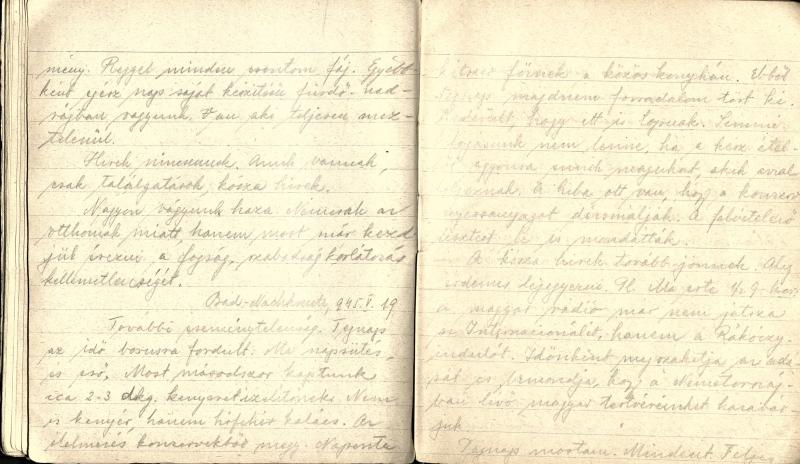 mény. Reggel minden csontom fáj. Egyéb-
ként egész nap saját készítésű fürdő-nad-
rágban vagyunk. Van aki teljesen mez-
telenül.
Hírek nincsenek. Amik vannak,
csak találgatások, kósza hírek.
Nagyon vágyunk haza. Nemcsak az
otthonak miatt, hanem most már kezd
jük érezni a fogság, szabadság korlátozás
kellemetlenségét.
Bad-Kreuznach, 945. V. 19
További eseménytelenség. Tegnap
az idő borusra fordult. Ma napsütés
és eső. Most másodszor kaptunk
ica 2-3 dkg. kenyeret izelitőnek. Nem
is kenyér, hanem hófehér kalács. Az
élelmezés konzervekből megy. Naponta
kétszer főznek a közös konyhán. Ebből
tegnap majdnem forradalom tört ki.
Kiderült, hogy itt is lopnak. Semmi
nem lenne, ha a kész étel-
magukat, akik avval
A hiba ott van, hogy a konzerv
nyersanyagot dézsmálják. A felvételező
tisztet le is mondatták.
A kósza hírek tovább jönnek. Alig
érdemes lejegyezni. Pl. Ma este ½ 9-kor
a magyar rádió már nem játsza
az Internacionálét, hanem a Rákóczy-
indulót. Időnként megszakítja az adá-
sát és bemondja, hogy a Németország-
ban lévő magyar testvéreinket hazavár-
juk.
Tegnap mostam. Mindent.